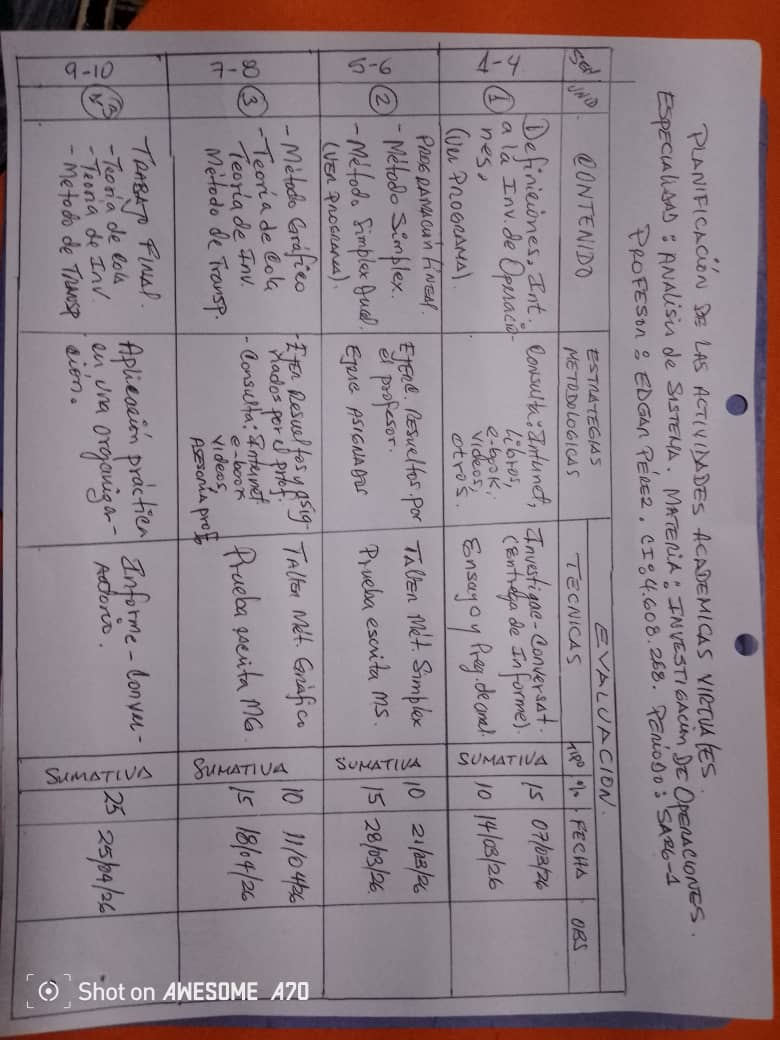 PLANIFICACIÓN DE LAS ACTIVIDADES ACADEMICAS VIRTUALES.
ESPECIALIDAD: ANALISIS DE SISTEMA. MATERIA: INVESTIGACION DE OPERACIONES.
PROFESOR: EDGAR PÉREZ. CI: 4.608.268. PERIODO: SAB6-1
SEM
UNID.
CONTENIDO
ESTRATEGIAS
METODOLOGICAS
EVALUACION.
TECNICAS
TIPO
%
FECHA
OBS.
1-4
1
Definiciones. Int.
a la Inv. de Operacio-
nes.
(Ver PROGRAMA).
Consulta: Internet,
Libros,
e-book,
videos,
otros.
Investigac-Conversat.
(Entrega de Informe).
Ensayo y Preg. de anal.
SUMATIVA
15 07/03/26
10 14/03/26
5-6
2
PROGRAMACION LINEAL
- Método Simplex.
- Método Simplex Dual.
(VER PROGRAMA).
EJERC. RESUELTOS. POR
el profesor.
EJERC ASIGNADOS
TALLER Mét. Simplex
Prueba escrita MS.
SUMATIVA
10 21/03/26
15 28/03/26
7-8
3
- Método Gráfico
- Teoría de Cola
Teoría de Inv.
Método de Transp.
- Ejer Resueltos y asig-
nados por el prof.
- Consulta: Internet
e-book
videos,
ASESORIA prof.
TALLER Mét. Gráfico
Prueba escrita MG.
SUMATIVA
10 11/04/26
15 18/04/26
9-10
TRABAJO FINAL.
- Teoría de Cola
- Teoría de Inv.
- Metodo de Transp
Aplicación práctica
en una organiza-
ción.
Informe - Conver-
SUMATIVA
25 25/04/26
Shot on AWESOME A70